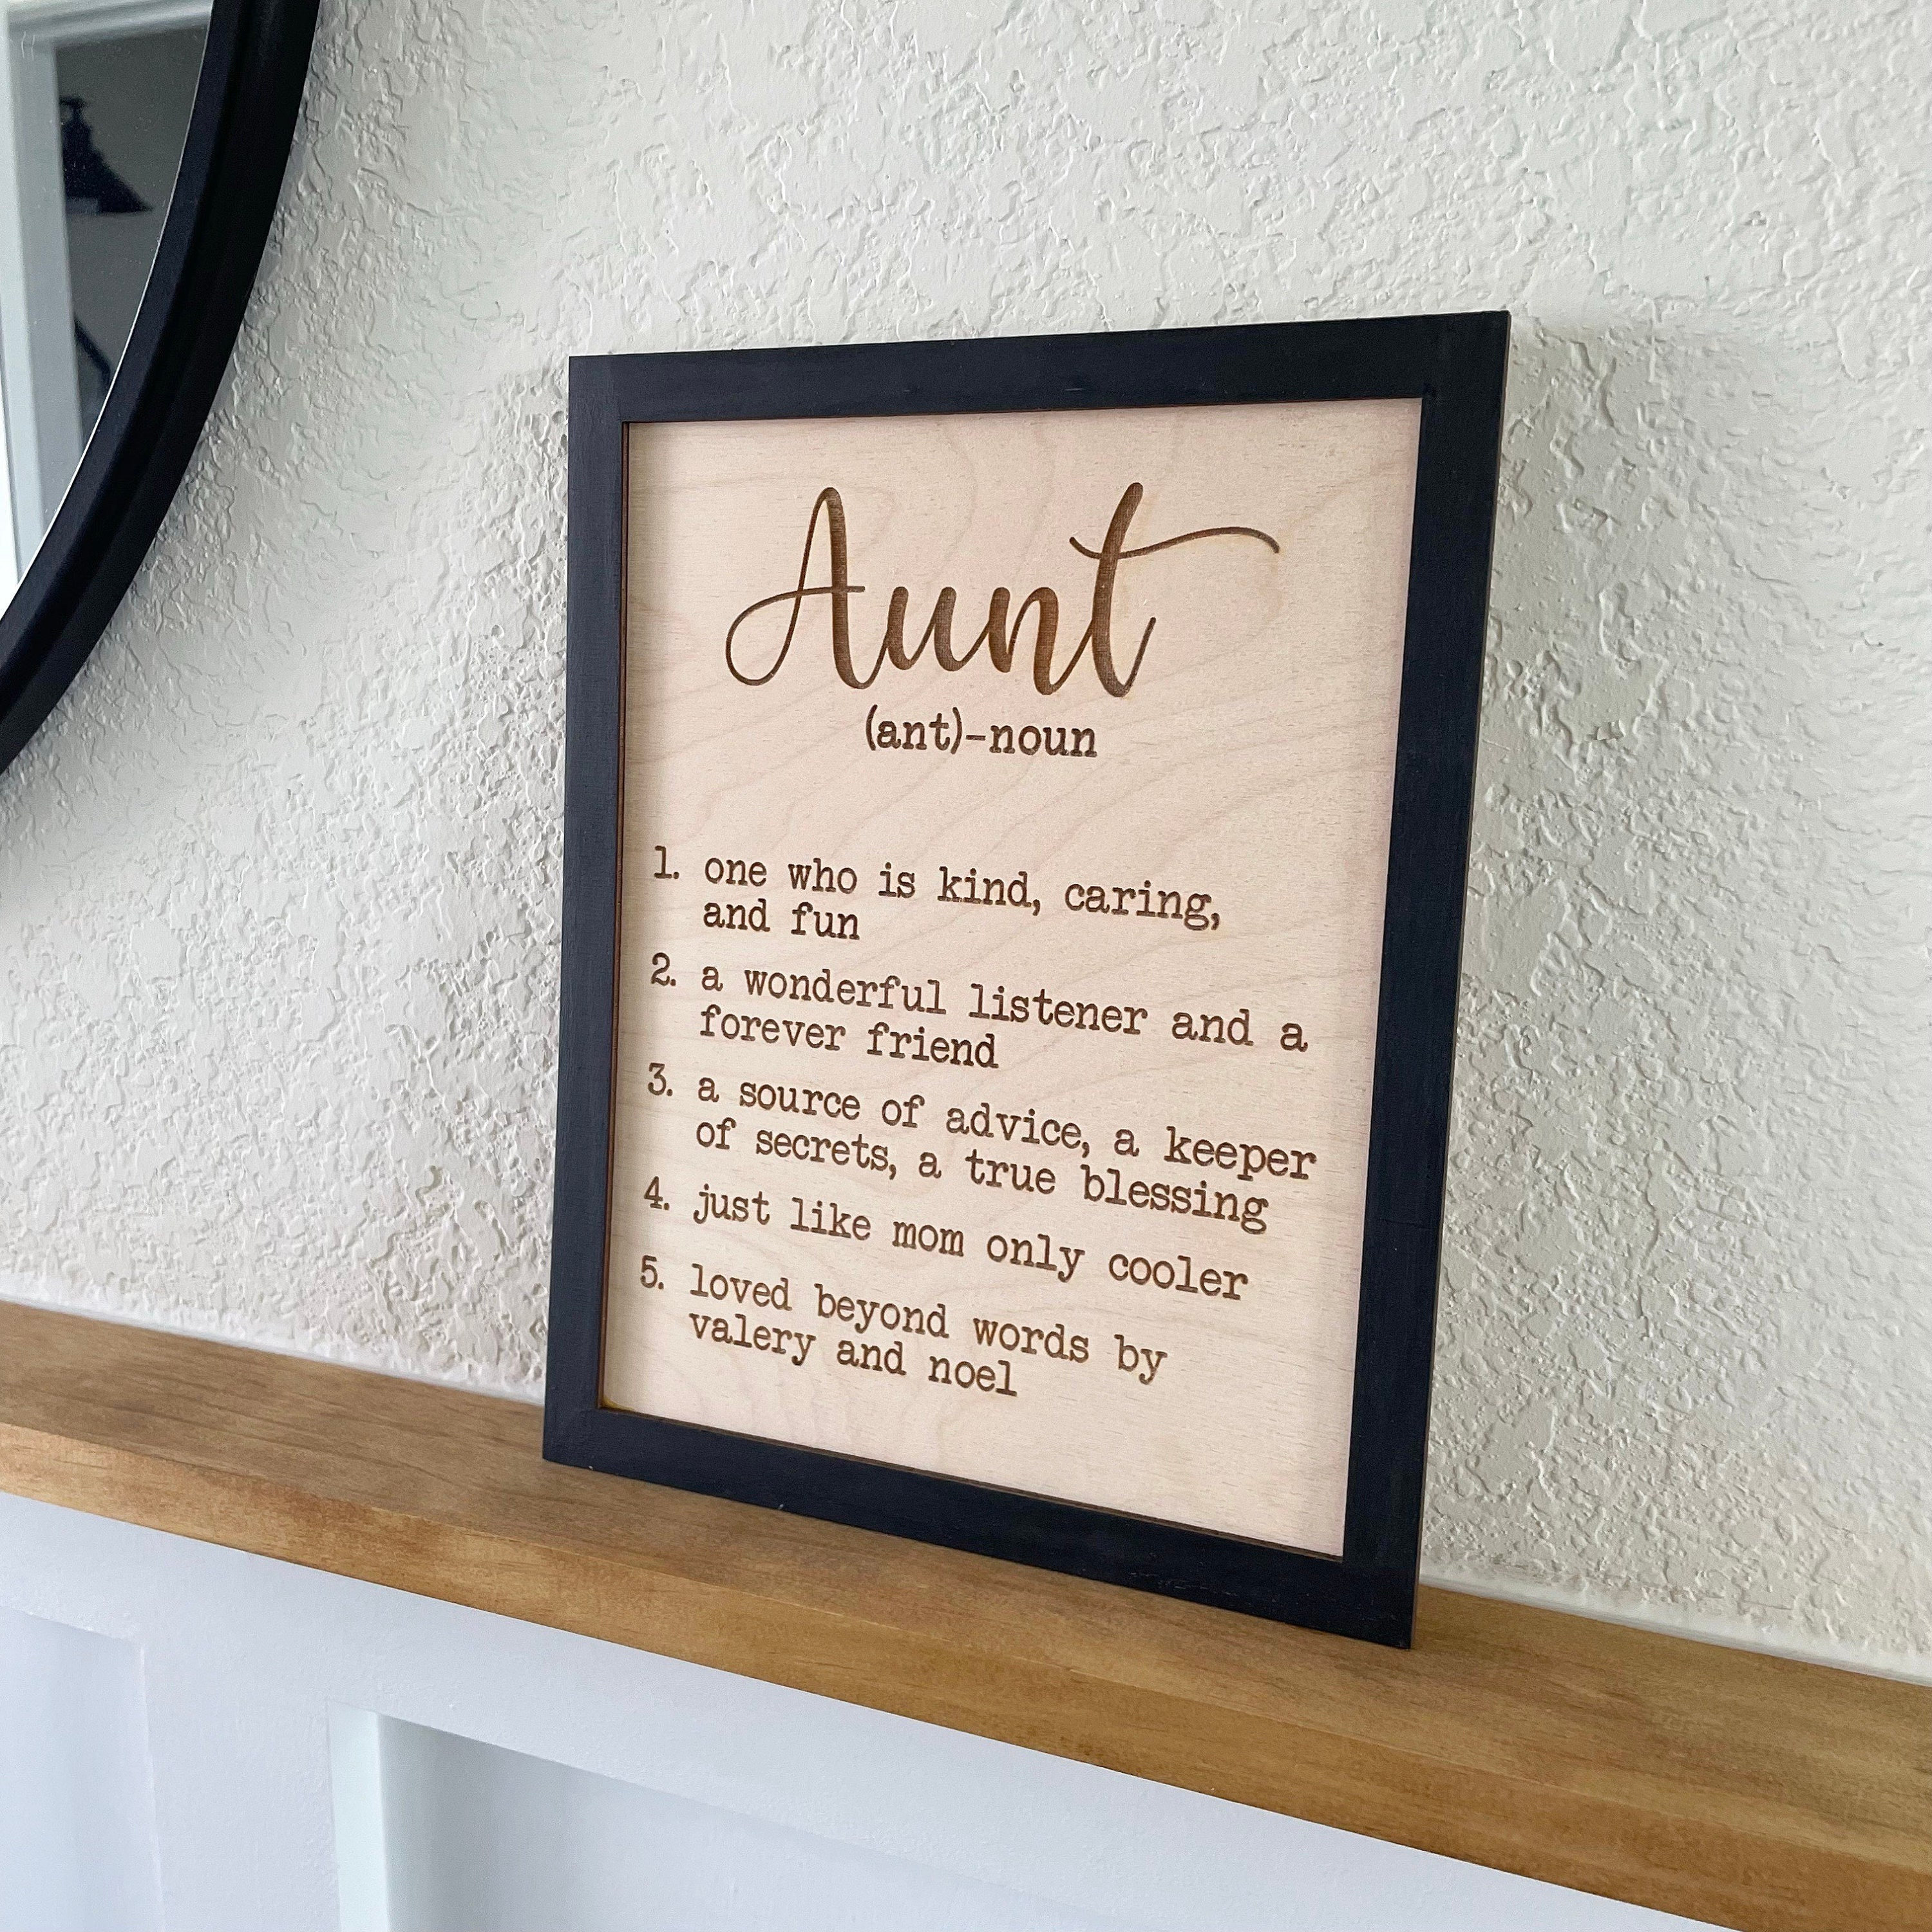 Aunt
(ant)-noun
1. one who is kind, caring,
and fun
2. a wonderful listener and a
forever friend
3. a source of advice, a keeper
of secrets, a true blessing
4. just like mom only cooler
5. loved beyond words by
valery and noel